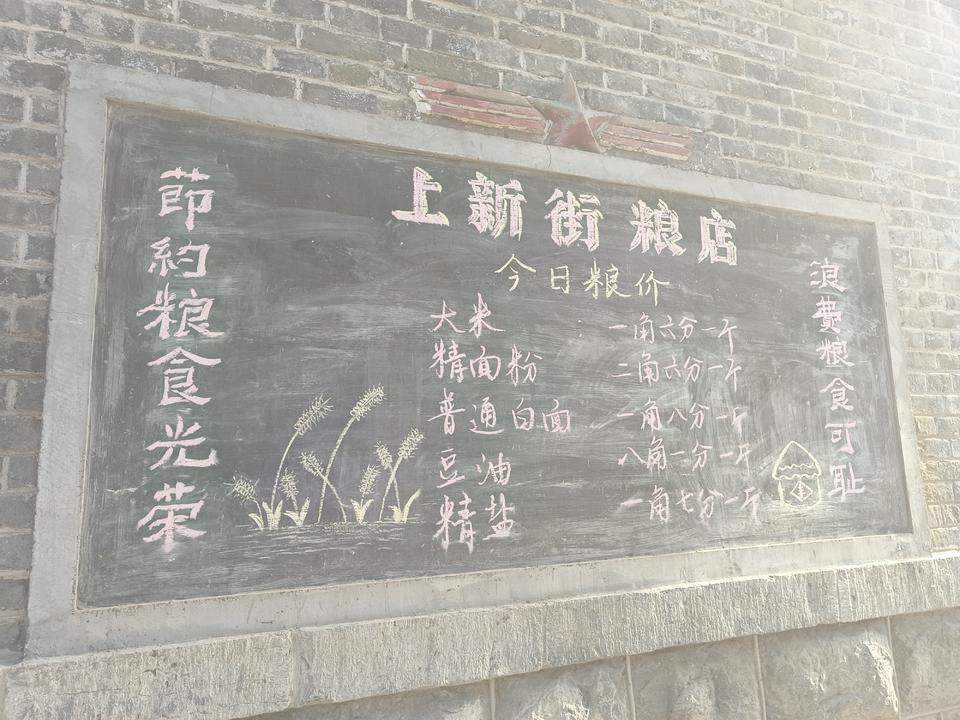 上新街粮店
今日粮价
大米 一角六分一斤
精面粉 二角六分一斤
普通白面 一角八分一斤
豆油 八角一分一斤
精盐 一角七分一斤
節約粮食光荣
浪费粮食可耻